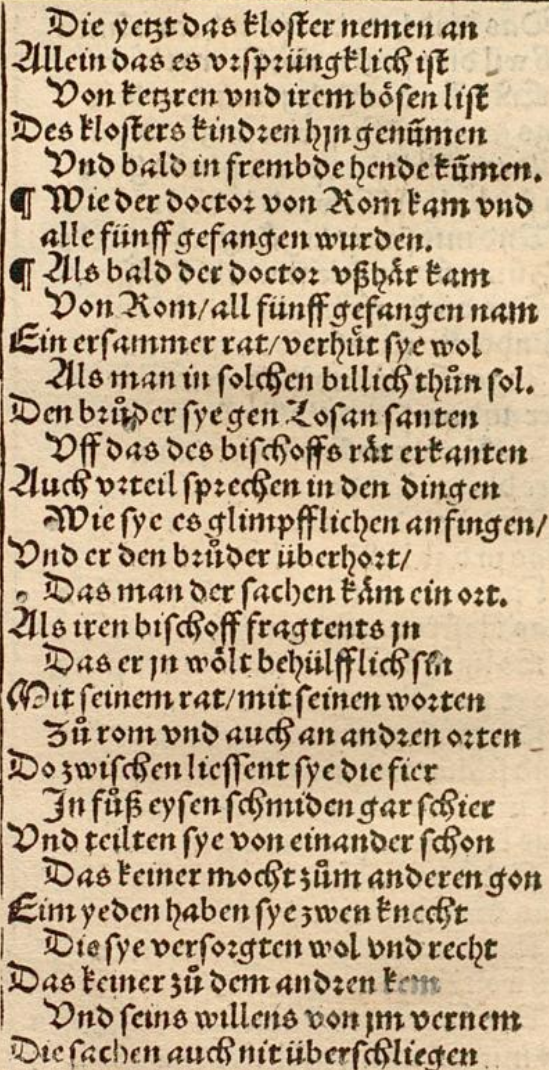 Die yetzt das kloster nemen an
Allein das es vrsprüngklich ist
Von ketzren vnd irem bösen list
Des klosters kindren hyn genūmen
Vnd bald in frembde hende kūmen.
¶ Wie der doctor von Rom kam vnd
alle fünff gefangen wurden.
¶ Als bald der doctor vßhär kam
Von Rom/all fünff gefangen nam
Ein ersammer rat/verhůt sye wol
Als man in solchen billich thůn sol.
Den brůder sye gen Losan santen
Vff das des bischoffs rät erkanten
Auch vrteil sprechen in den dingen
Wie sye es glimpfflichen anfingen/
Vnd er den brůder überhort/
Das man der sachen käm ein ort.
Als iren bischoff fragtents jn
Das er jn wölt behülfflich sin
Mit seinem rat/mit seinen worten
Zů rom vnd auch an andren orten
Do zwischen liessent sye die fier
In fůß eysen schmiden gar schier
Vnd teilten sye von einander schon
Das keiner mocht zům anderen gon
Eim yeden haben sye zwen knecht
Die sye versorgten wol vnd recht
Das keiner zů dem andren kem
Vnd seins willens von jm vernem
Die sachen auch nit überschliegen